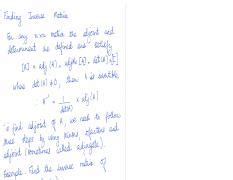 Finding Inverse Matrix
For any n×n matrix the adjoint and
determinant are defined and satisfy
[A] × adj [A] = adj[A] × [A] = det[A] × [I]
where det(A) ≠ 0, then A is invertible
∴ A⁻¹ = 1/det(A) × adj(A)
find adjoint of A, we need to follow
steps by using minors, cofactors and
adjoint (sometimes called adjugate).
Example. Find the inverse matrix of